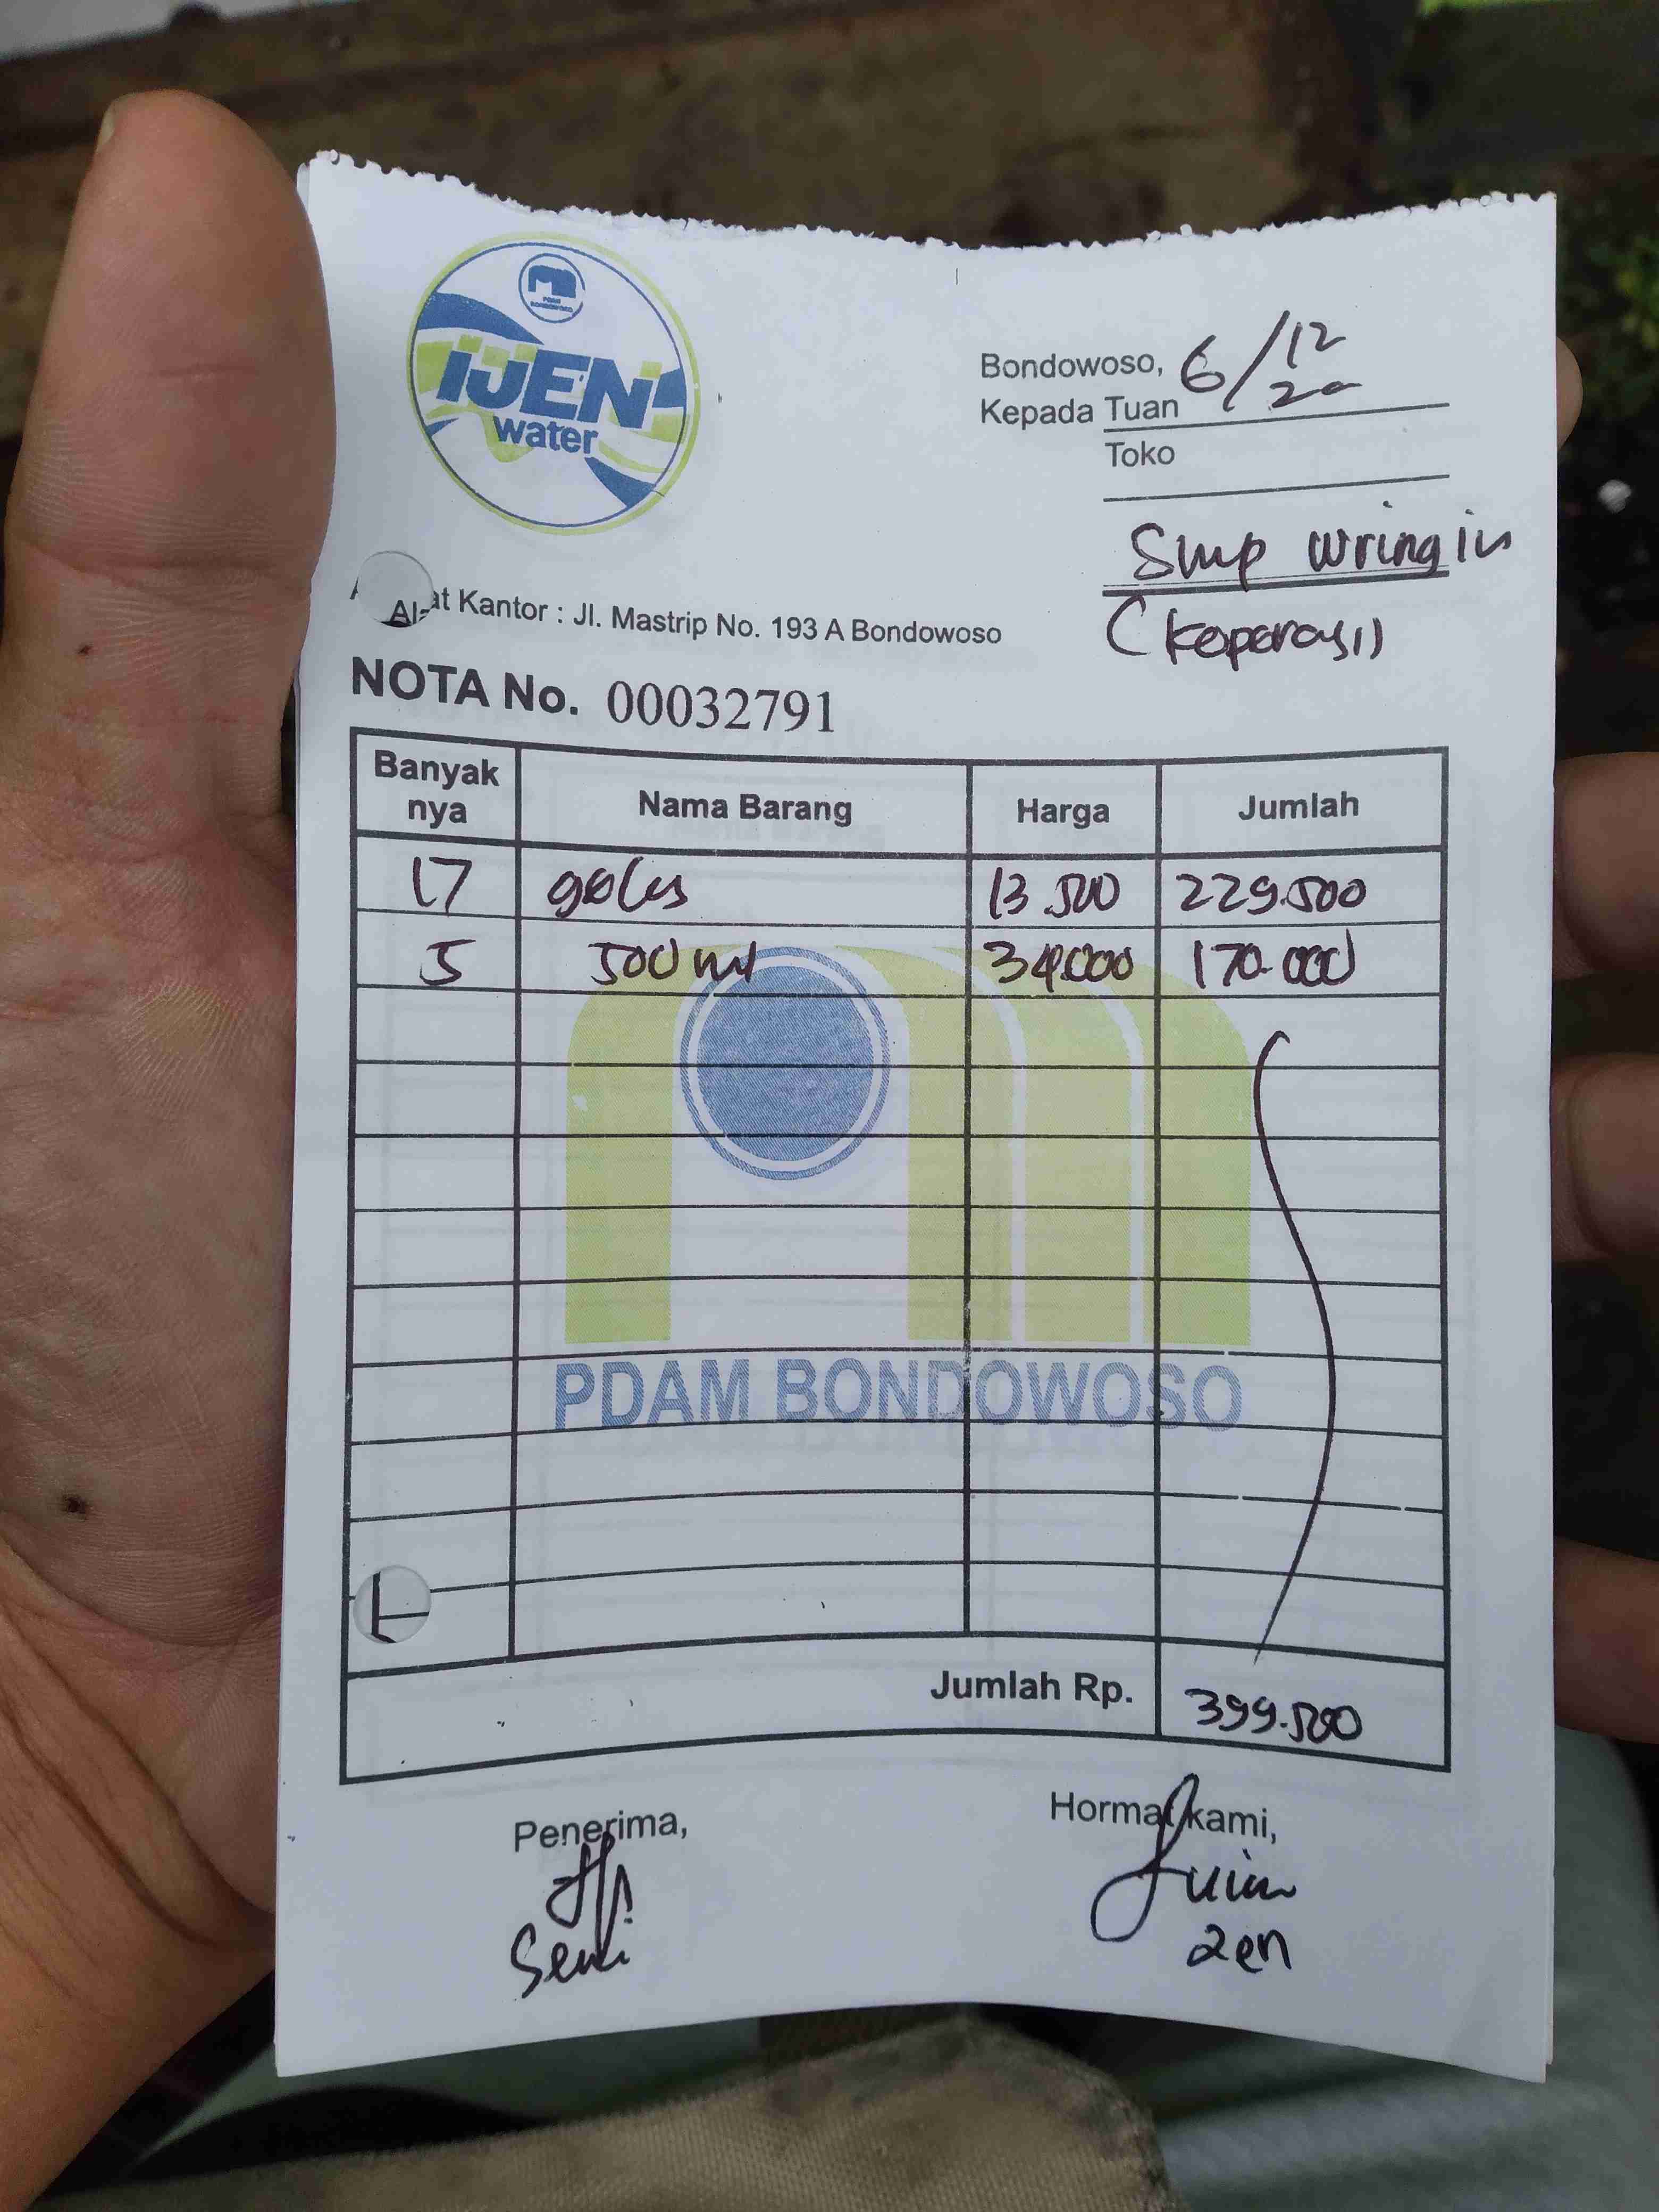 PDAM
BONDOWOSO
IJEN
water
Bondowoso, 6/12 20
Kepada Tuan
Toko
Smp Wringin
(Koperasi)
Kantor : Jl. Mastrip No. 193 A Bondowoso
NOTA No. 00032791
Banyak nya Nama Barang Harga Jumlah
17 gelas 13.500 229.500
5 500 ml 34.000 170.000
PDAM BONDOWOSO
Jumlah Rp. 399.500
Penerima, Hormat kami,
zen